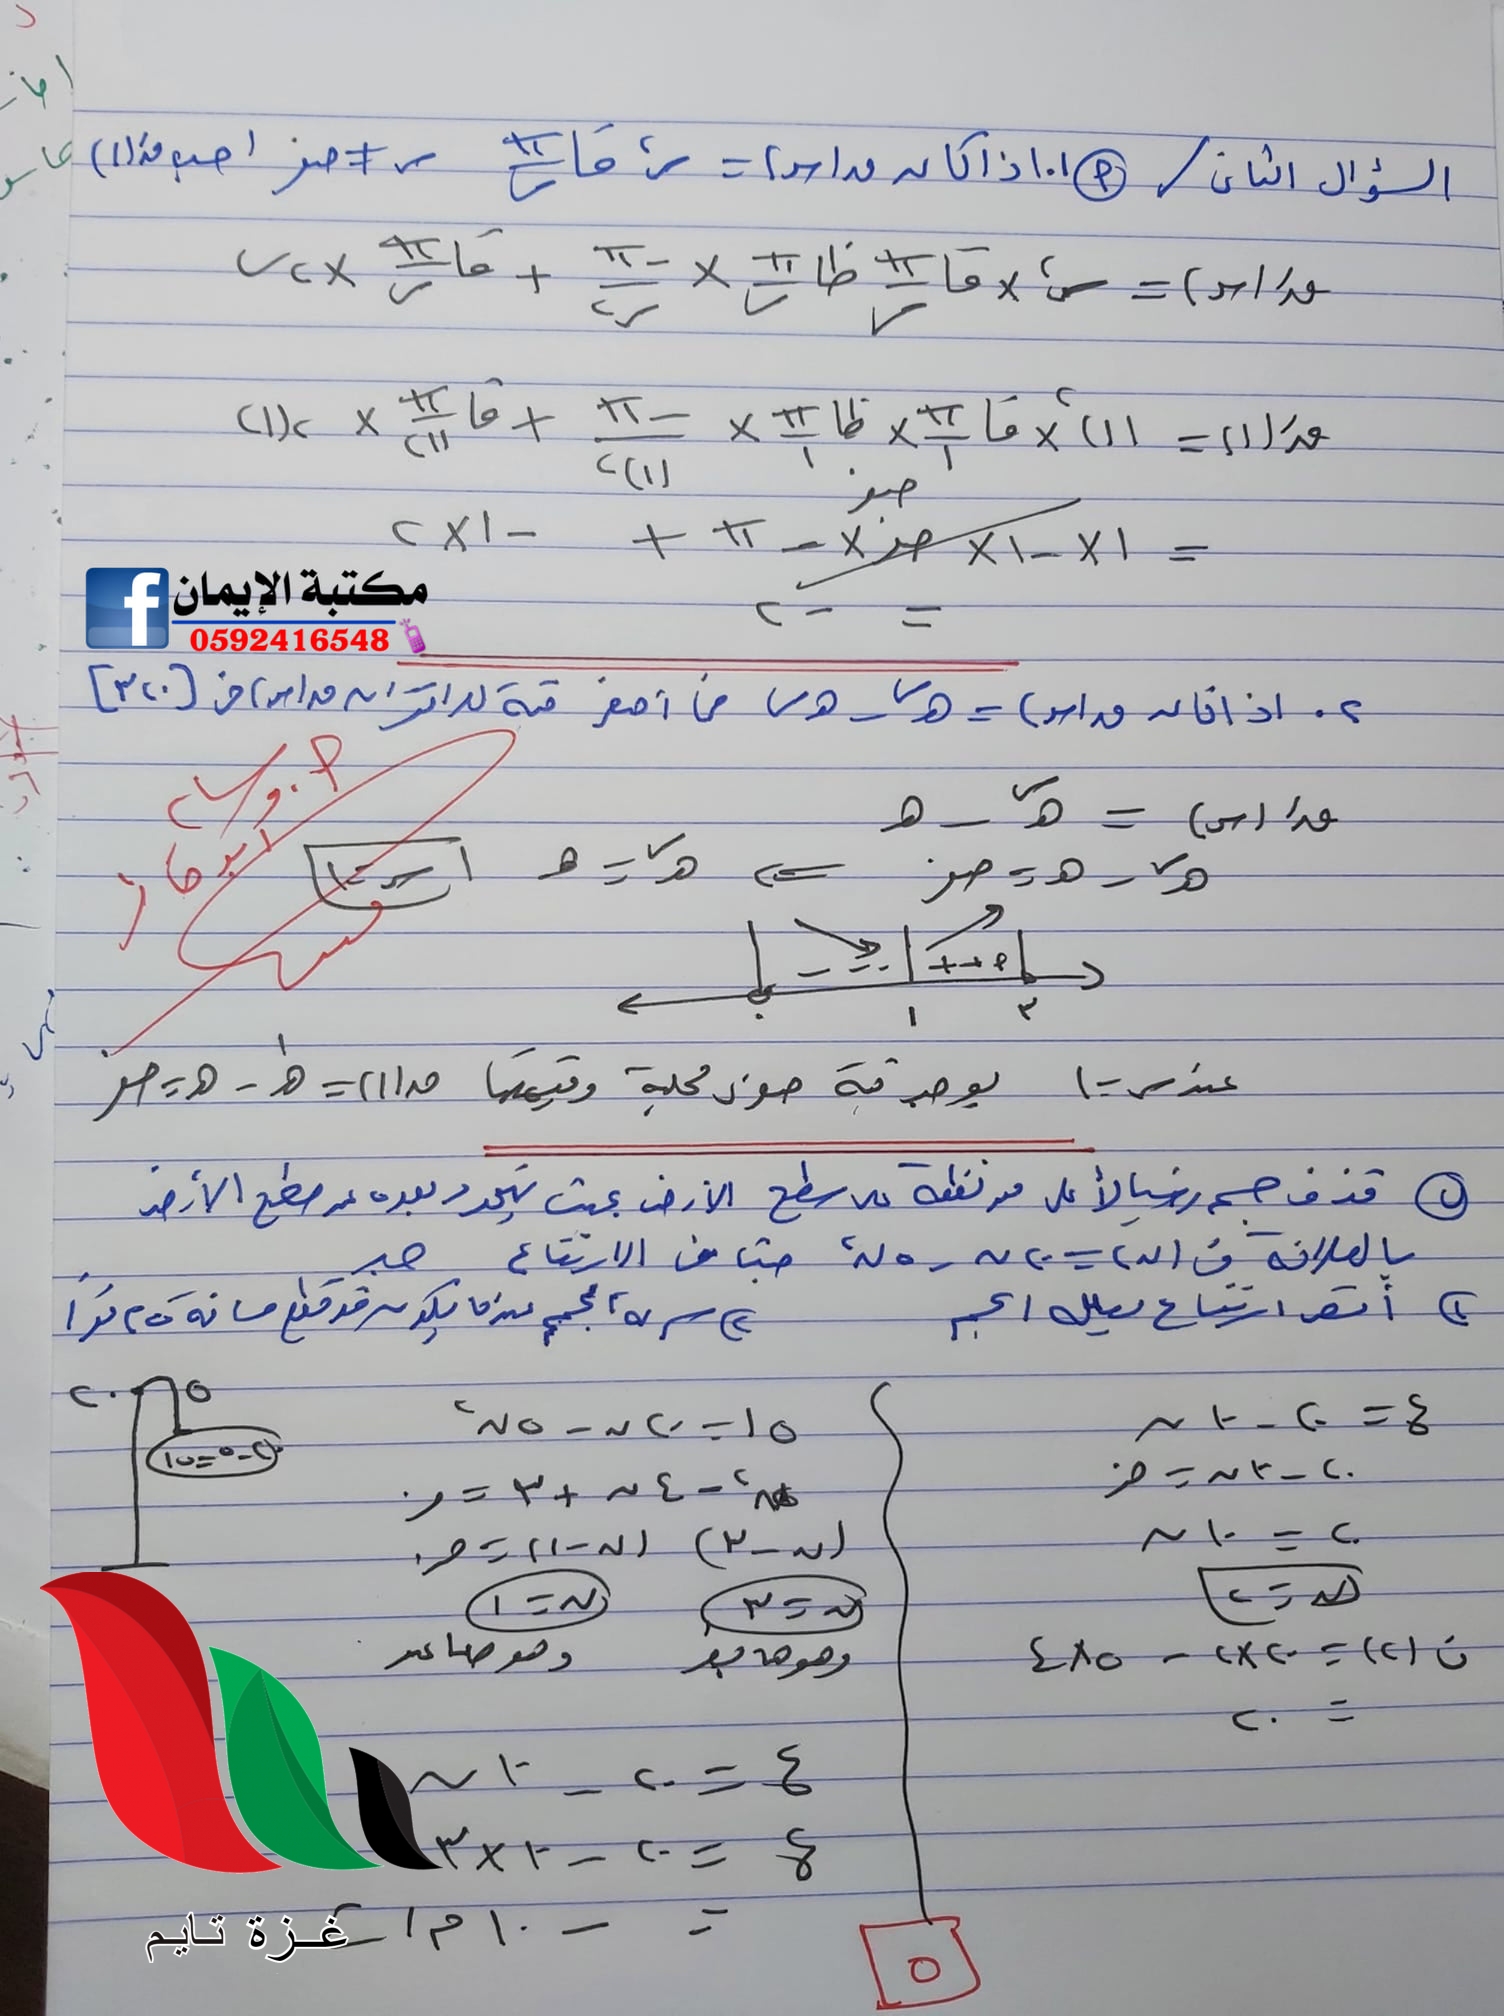 السؤال الثاني / (أ) ١. إذا كان ق(س) = س² قا π/س س ≠ صفر احسب قَ(١)
قَ(س) = س² × قا π/س ظا π/س × -π/س² + قا π/س × ٢س
قَ(١) = (١)² × قا π/١ × ظا π/١ × -π/(١)² + قا π/(١) × ٢(١)
صفر
= ١ × -١ × صفر × -π + -١ × ٢
= -٢
مكتبة الإيمان
0592416548
٢. إذا كان ق(س) = هـ^س - هـ س فما أصغر قيمة للاقتران ق(س) في [٠، ٣]
قَ(س) = هـ^س - هـ
هـ^س - هـ = صفر ⇐ هـ^س = هـ س = ١
٠ - - - ١ + + + ٣
عند س = ١ يوجد قيمة صغرى محلية وقيمتها ق(١) = هـ^١ - هـ = صفر
ب) قذف جسم رأسياً لأعلى من نقطة على سطح الأرض بحيث يتحدد بعده عن سطح الأرض
بالعلاقة ف(ن) = ٢٠ن - ٥ن² حيث ف الارتفاع جد
١) أقصى ارتفاع يصله الجسم ٢) سرعة الجسم عندما يكون قد قطع مسافة ٢٥ متراً
ع = ٢٠ - ١٠ن
٢٠ - ١٠ن = صفر
٢٠ = ١٠ن
ن = ٢
ف(٢) = ٢٠×٢ - ٥×٤
= ٢٠
٢٠ ٥
٢٠ - ٥ = ١٥
١٥ = ٢٠ن - ٥ن²
ن² - ٤ن + ٣ = صفر
(ن - ٣) (ن - ١) = صفر
ن = ٣ ن = ١
وهو هابط وهو صاعد
ع = ٢٠ - ١٠ن
ع = ٢٠ - ١٠×٣
= -١٠ م/ث
غزة تايم
٥